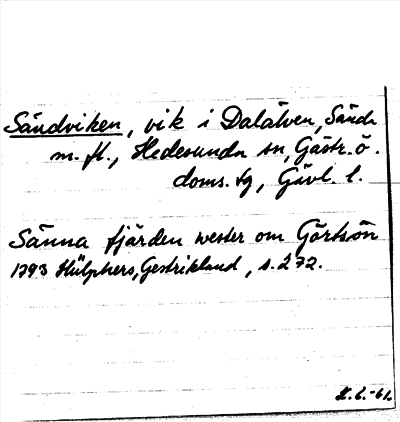 Sändviken, vik i Dalälven, Sända
m. fl., Hedesunda sn, Gästr. ö.
doms. tg, Gävl. l.
Sänna fjärden wester om Görtsön
1793 Hülphers, Gestrikland, s. 272.